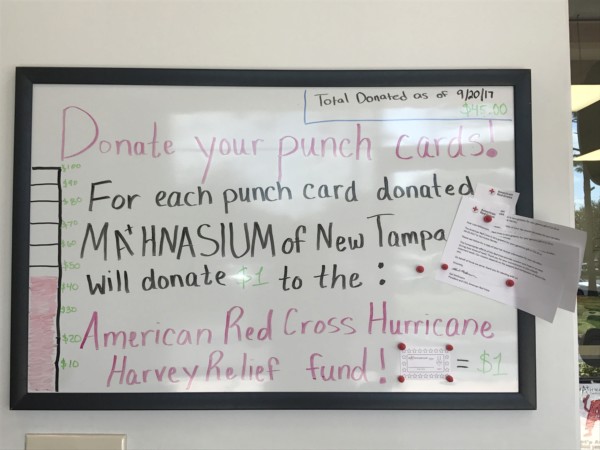 Total Donated as of 9/20/17
$45.00
Donate your punch cards!
For each punch card donated
MA+HNASIUM of New Tampa
will donate $1 to the :
American Red Cross Hurricane
Harvey Relief fund!
= $1
$100
$90
$80
$70
$60
$50
$40
$30
$20
$10